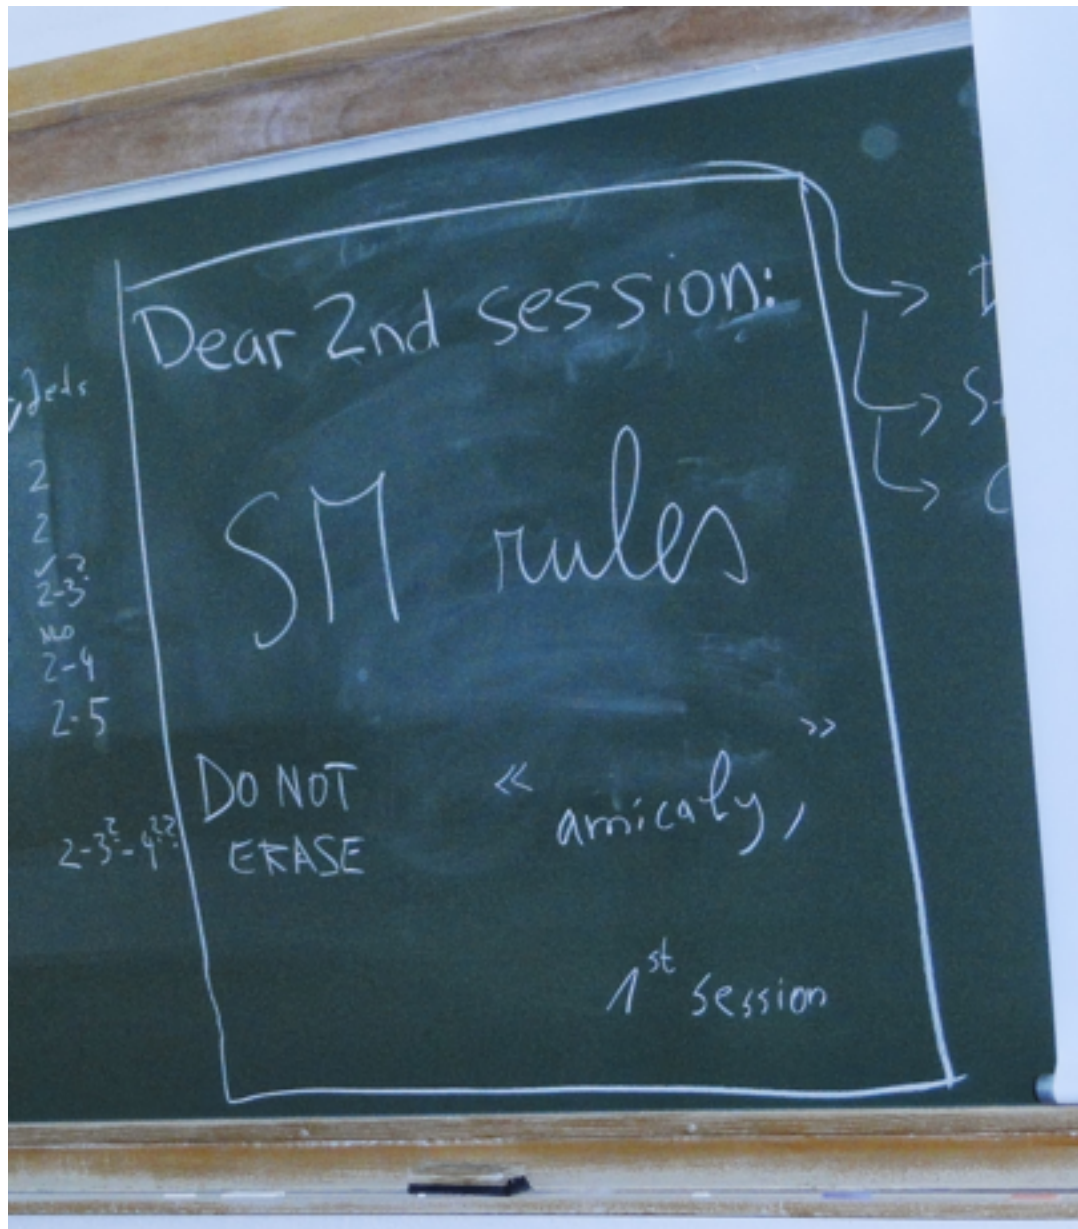 Dear 2nd session:
SM rules
DO NOT
ERASE
« amicaly, »
1st session
Jets
2
2
2-3?
NLO
2-4
2-5
2-3?-4??